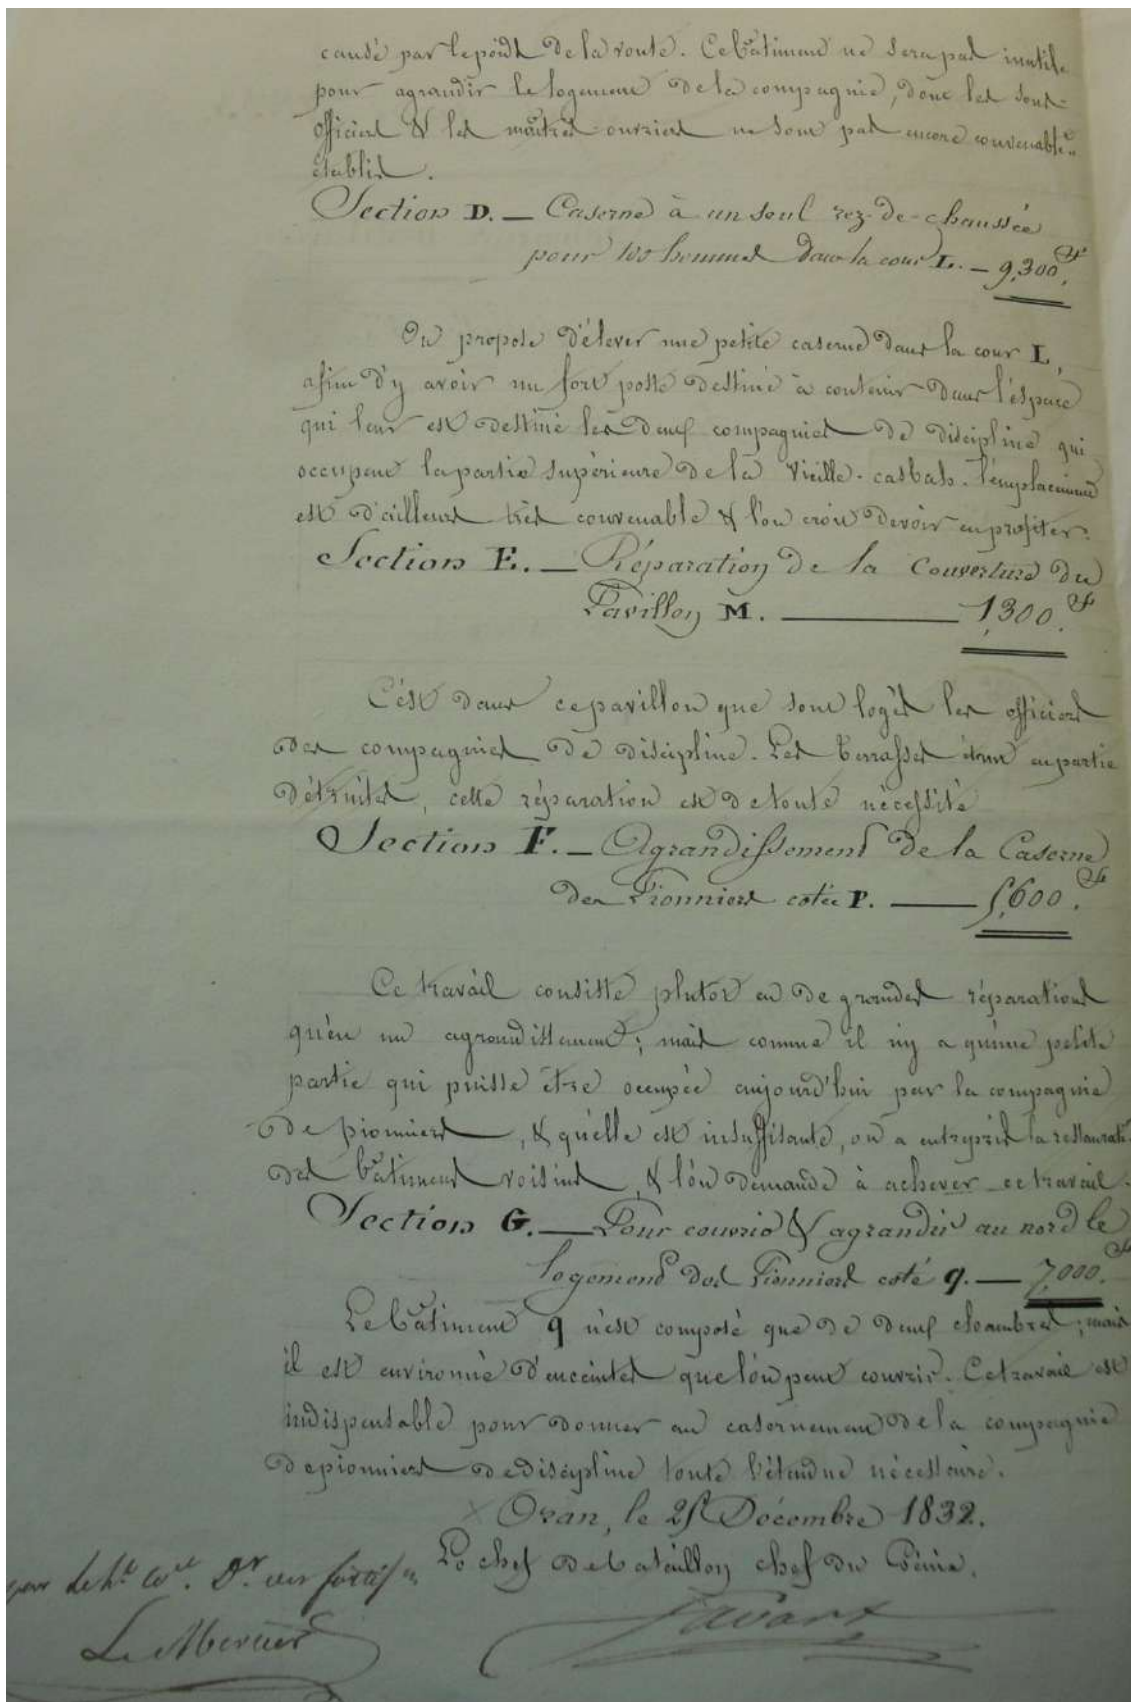 causé par le poids de la route. Ce bâtiment ne sera pas inutile
pour agrandir le logement de la compagnie, dont les sous-
officiers & les maîtres ouvriers ne sont pas encore convenablt.
établis.
Section D. — Caserne à un seul rez-de-chaussée
pour hommes dans la cour L. — 9,300.f
On propose d'élever une petite caserne dans la cour L,
afin d'y avoir un fort poste destiné à contenir dans l'éspace
qui leur est destiné les deux compagnies de discipline qui
occupent la partie supérieure de la Vieille-casbah. l'emplacement
est d'ailleurs très convenable & l'on croit devoir en profiter.
Section E. — Réparation de la Couverture du
Pavillon M. — 1,300.f
C'est dans ce pavillon que sont logés les officiers
des compagnies de discipline. Les terrasses étant en partie
détruites, cette réparation est de toute nécessité
Section F. — Agrandissement de la Caserne
des Pionniers cotée P. — 5,600.f
Ce travail consiste plutot en de grandes réparations
qu'en un agrandissement; mais comme il n'y a qu'une petite
partie qui puisse être occupée aujourd'hui par la compagnie
de pionniers, & qu'elle est insuffisante, on a entrepris la restauratn.
des bâtiments voisins, & l'on demande à achever ce travail.
Section G. — Pour couvrir & agrandir au nord le
logement des Pionniers coté q. — 7,000.f
Le bâtiment q n'est composé que de deux chambres; mais
il est environné d'enceintes que l'on peut couvrir. Ce travail est
indispensable pour donner au casernement de la compagnie
de pionniers de discipline toute l'étendue nécessaire.
Oran, le 25 Décembre 1832.
Le chef de bataillon chef du Génie,
Le Mercier Savart